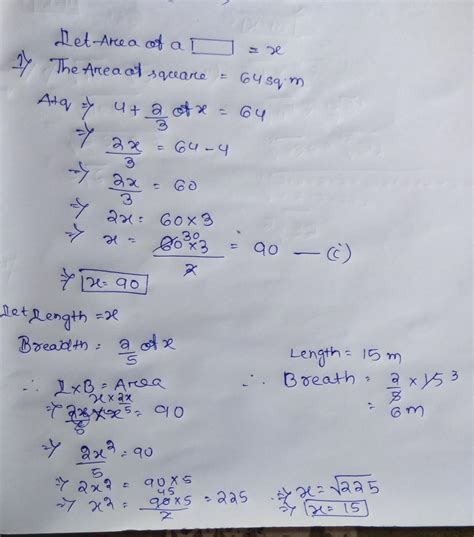 Let Area of a ▭ = x
1) The Area of square = 64 sq.m
A+q ⇒ 4 + 2/3 of x = 64
⇒ 2x/3 = 64 - 4
⇒ 2x/3 = 60
⇒ 2x = 60 × 3
⇒ x = 60 30 × 3 / 2 = 90 — (i)
⇒ x = 90
Let Length = x
Breadth = 2/5 of x
∴ L×B = Area
x × 2x/5 = 90
⇒ 2x²/5 = 90
⇒ 2x² = 90 × 5
⇒ x² = 90 45 × 5 / 2 = 225
∴ ⇒ x = √225
⇒ x = 15
Length = 15 m
∴ Breath = 2/5 × 15 3
= 6m